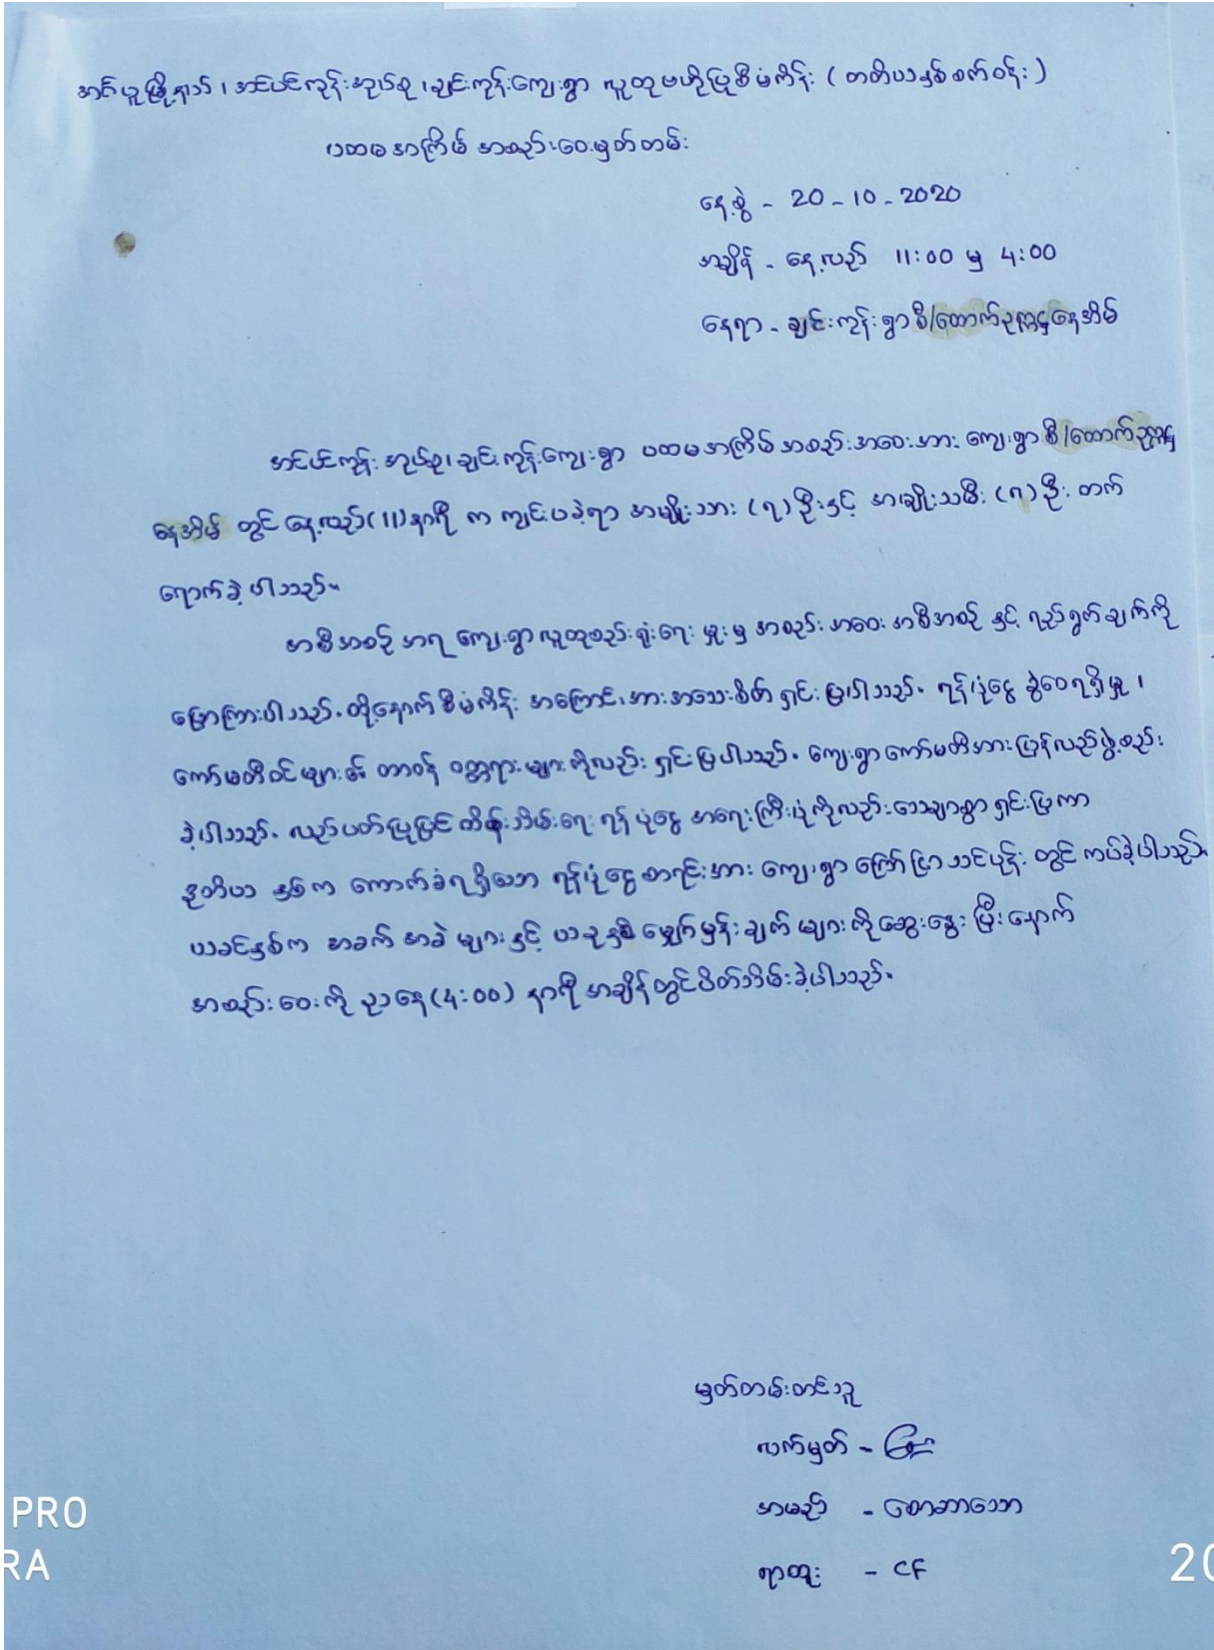 အင်္ဂပူမြို့နယ်၊ အင်ပင်ကုန်းအုပ်စု၊ ချင်းကုန်းကျေးရွာ လူထုဗဟိုပြုစီမံကိန်း (တတိယနှစ်စက်ဝန်း)
ပထမအကြိမ် အစည်းဝေးမှတ်တမ်း
နေ့စွဲ - 20-10-2020
အချိန် - နေ့လည် 11:00 မှ 4:00
နေရာ - ချင်းကုန်းရွာစီ/ထောက်ဥက္ကဌနေအိမ်
အင်ပင်ကုန်းအုပ်စု၊ ချင်းကုန်းကျေးရွာ ပထမအကြိမ် အစည်းအဝေးအား ကျေးရွာစီ/ထောက်ဥက္ကဌ
နေအိမ် တွင် နေ့လည်(11)နာရီ က ကျင်းပခဲ့ရာ အမျိုးသား (၇)ဦးနှင့် အမျိုးသမီး (၇)ဦး တက်
ရောက်ခဲ့ပါသည်။
အစီအစဉ် အရ ကျေးရွာလူထုစည်းရုံးရေးမှူးမှ အစည်းအဝေး အစီအစဉ် နှင့် ရည်ရွယ်ချက်ကို
ပြောကြားပါသည်။ ထို့နောက် စီမံကိန်း အကြောင်းအား အသေးစိတ် ရှင်းပြပါသည်။ ရန်ပုံငွေ ခွဲဝေရရှိမှု၊
ကော်မတီဝင်များ၏ တာဝန် ဝတ္တရားများကိုလည်း ရှင်းပြပါသည်။ ကျေးရွာကော်မတီအား ပြန်လည်ဖွဲ့စည်း
ခဲ့ပါသည်။ လည်ပတ်ပြုပြင်ထိန်းသိမ်းရေး ရန်ပုံငွေ အရေးကြီးပုံကိုလည်းသေချာစွာ ရှင်းပြကာ
ဒုတိယ နှစ်က ကောက်ခံရရှိသော ရန်ပုံငွေ စာရင်းအား ကျေးရွာ ကြော်ငြာသင်ပုန်း တွင် ကပ်ခဲ့ပါသည်။
ယခင်နှစ်က အခက်အခဲများနှင့် ယခုနှစ် မျှော်မှန်းချက်များကို ဆွေးနွေး ပြီးနောက်
အစည်းဝေးကို ညနေ(4:00) နာရီ အချိန်တွင် ပိတ်သိမ်းခဲ့ပါသည်။
မှတ်တမ်းတင်သူ
လက်မှတ် -
အမည် - စောဆာသော
ရာထူး - CF
PRO
RA
20